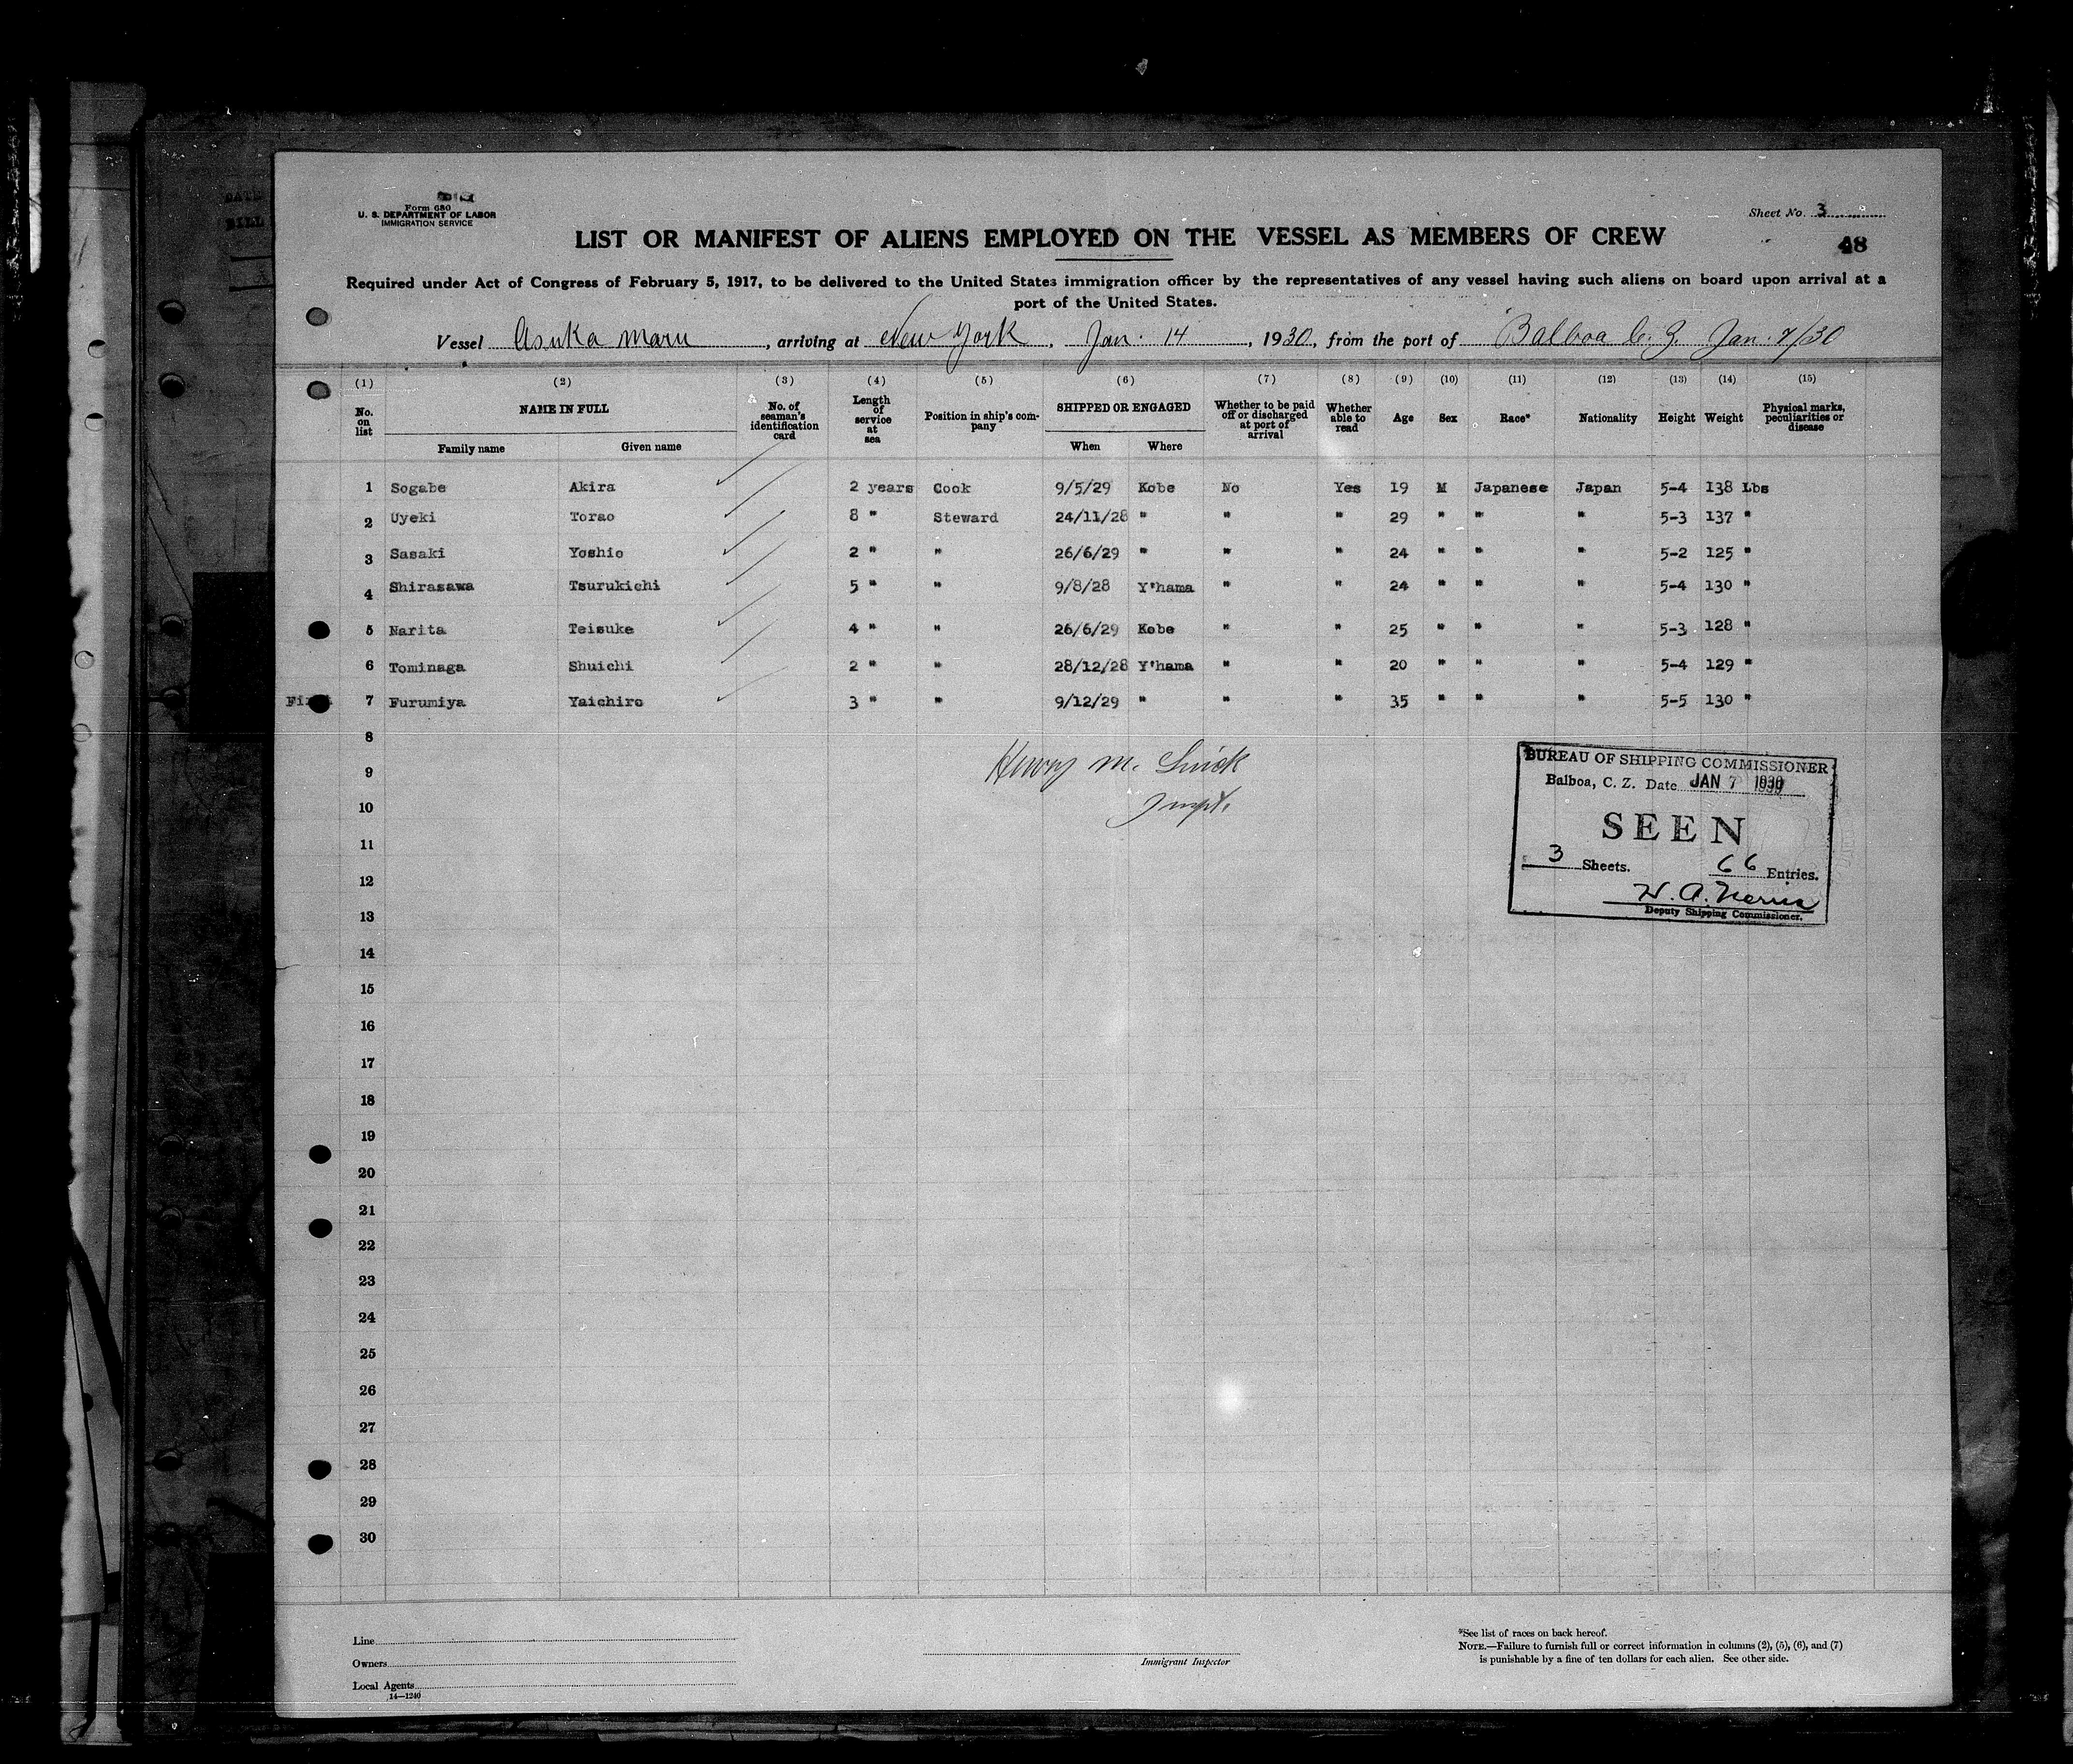 Form 680
U. S. DEPARTMENT OF LABOR
IMMIGRATION SERVICE
Sheet No. 3
48
LIST OR MANIFEST OF ALIENS EMPLOYED ON THE VESSEL AS MEMBERS OF CREW
Required under Act of Congress of February 5, 1917, to be delivered to the United States immigration officer by the representatives of any vessel having such aliens on board upon arrival at a
port of the United States.
Vessel Asuka Maru, arriving at New York, Jan. 14, 1930, from the port of Balboa C. Z. Jan. 7/30
(1) (2) (3) (4) (5) (6) (7) (8) (9) (10) (11) (12) (13) (14) (15)
No. on list NAME IN FULL Family name Given name No. of seaman's identification card Length of service at sea Position in ship's company SHIPPED OR ENGAGED When Where Whether to be paid off or discharged at port of arrival Whether able to read Age Sex Race* Nationality Height Weight Physical marks, peculiarities or disease
1 Sogabe Akira 2 years Cook 9/5/29 Kobe No Yes 19 M Japanese Japan 5-4 138 Lbs
2 Uyeki Torao 8 " Steward 24/11/28 " " " 29 " " " 5-3 137 "
3 Sasaki Yoshio 2 " " 26/6/29 " " " 24 " " " 5-2 125 "
4 Shirasawa Tsurukichi 5 " " 9/8/28 Y'hama " " 24 " " " 5-4 130 "
5 Narita Teisuke 4 " " 26/6/29 Kobe " " 25 " " " 5-3 128 "
6 Tominaga Shuichi 2 " " 28/12/28 Y'hama " " 20 " " " 5-4 129 "
7 Furumiya Yaichiro 3 " " 9/12/29 " " " 35 " " " 5-5 130 "
8
9
10
11
12
13
14
15
16
17
18
19
20
21
22
23
24
25
26
27
28
29
30
M.
BUREAU OF SHIPPING COMMISSIONER
Balboa, C. Z. Date JAN 7 1930
SEEN
3 Sheets. 66 Entries.
Deputy Shipping Commissioner.
Line
Owners
Local Agents
14—1240
Immigrant Inspector
*See list of races on back hereof.
NOTE.—Failure to furnish full or correct information in columns (2), (5), (6), and (7)
is punishable by a fine of ten dollars for each alien. See other side.